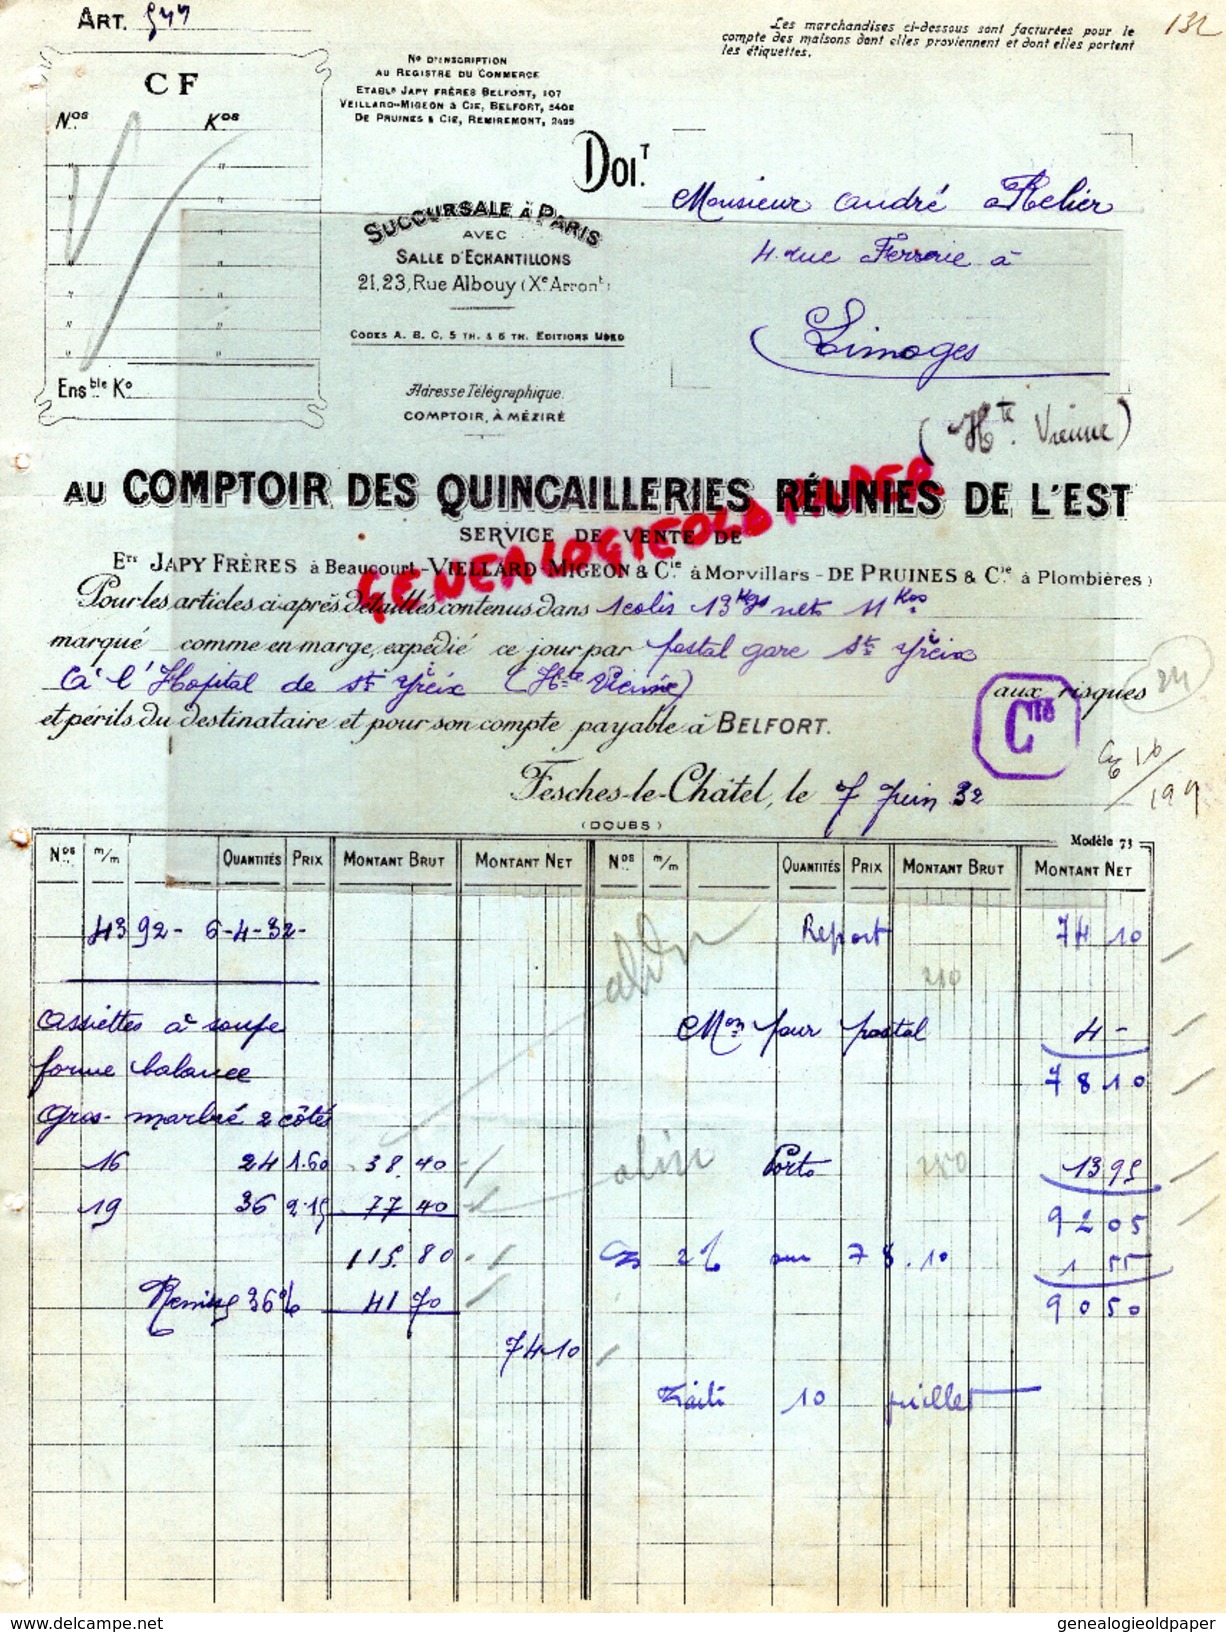 ART. 547
132
Les marchandises ci-dessous sont facturées pour le
compte des maisons dont elles proviennent et dont elles portent
les étiquettes.
C F
Nos Kos
Ensble Ko
No D'INSCRIPTION
AU REGISTRE DU COMMERCE
ETABLs JAPY FRÈRES BELFORT, 107
VEILLARD-MIGEON & CIE, BELFORT, 5402
DE PRUINES & CIE, REMIREMONT, 2495
DOIT.
Monsieur André Relier
4 rue Ferrerie à
Limoges
(Hte. Vienne)
SUCCURSALE À PARIS
AVEC
SALLE D'ECHANTILLONS
21, 23, Rue Albouy (Xe Arront)
CODES A. B. C. 5 TH. & 6 TH. EDITIONS USED
Adresse Télégraphique
COMPTOIR, À MÉZIRÉ
AU COMPTOIR DES QUINCAILLERIES RÉUNIES DE L'EST
SERVICE DE VENTE DE
Ets JAPY FRÈRES à Beaucourt - VIELLARD-MIGEON & Cie à Morvillars - DE PRUINES & Cie à Plombières
GENEALOGIEOLDPAPER
Pour les articles ci-après détaillés contenus dans 1 colis 13 Kgs nets 11 Kos
marqué comme en marge, expédié ce jour par postal gare St Yrieix
à l'Hopital de St Yrieix (Hte Vienne) aux risques
et périls du destinataire et pour son compte payable à BELFORT.
Cité
Fesches-le-Châtel, le 7 Juin 32
(DOUBS)
Modèle 73
Nos m/m QUANTITÉS PRIX MONTANT BRUT MONTANT NET Nos m/m QUANTITÉS PRIX MONTANT BRUT MONTANT NET
4392 - 6-4-32 - Report 74 10
Assiettes à soupe Mon pour postal 4 -
forme balance 78 10
Gros- marbré 2 côtés
16 24 1.60 38.40 Porto 13 95
19 36 2.15 77 40 92 05
115.80 2% sur 78.10 1 55
Remise 36% 41 70 90 50
74 10
Traite 10 juillet
www.delcampe.net genealogieoldpaper